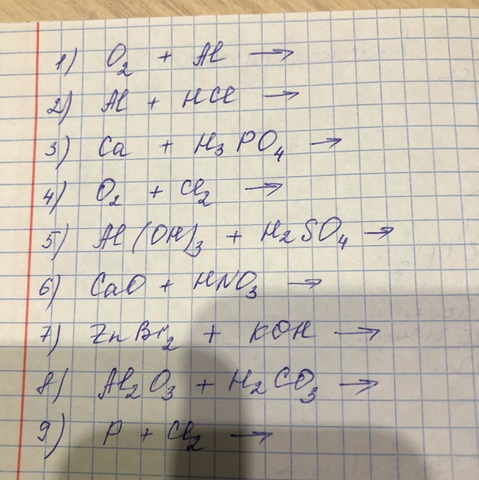 1) O₂ + Al →
2) Al + HCl →
3) Ca + H₃PO₄ →
4) O₂ + Cl₂ →
5) Al(OH)₃ + H₂SO₄ →
6) CaO + HNO₃ →
7) ZnBr₂ + KOH →
8) Al₂O₃ + H₂CO₃ →
9) P + Cl₂ →